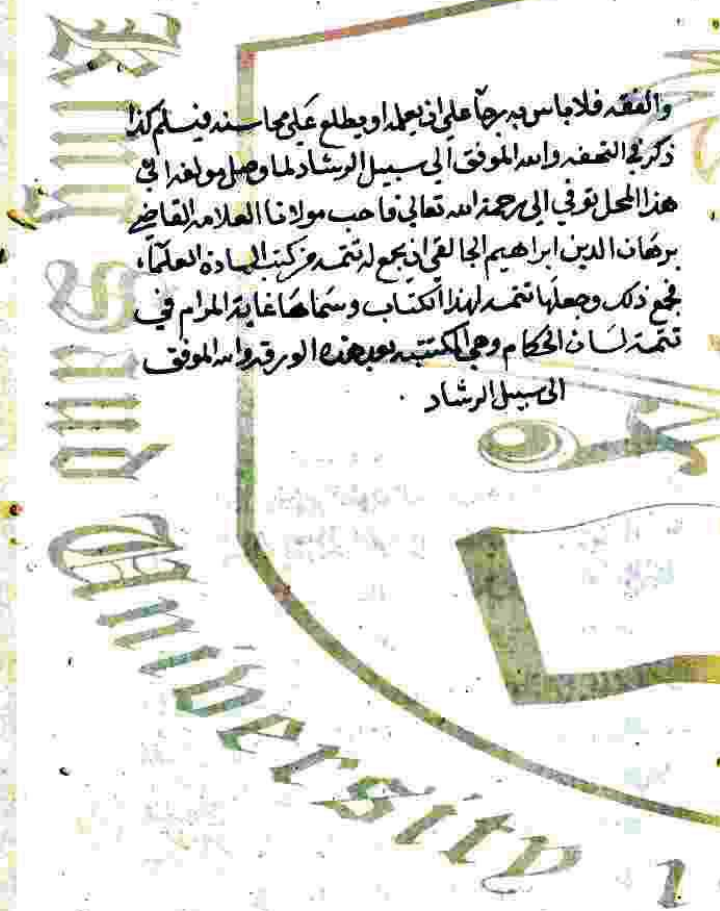 والفقه فلا باس به برجآ على ان يعمله او يطلع على محاسنه فيسلم كذا
ذكر في التحفه والله الموفق الى سبيل الرشاد لما وصل مولفه الى
هذا المحل توفي الى رحمة الله تعالى فاحب مولانا العلامه القاضي
برهان الدين ابراهيم الخالفي ان يجمع له تتمه من كتب السادة العلمآء
فجمع ذلك وجعلها تتمه لهذا الكتاب وسماها غاية المرام في
تتمة لسان الحكام وهي المكتتبه بعد هذه الورقه والله الموفق
الى سبيل الرشاد
King Saud
University